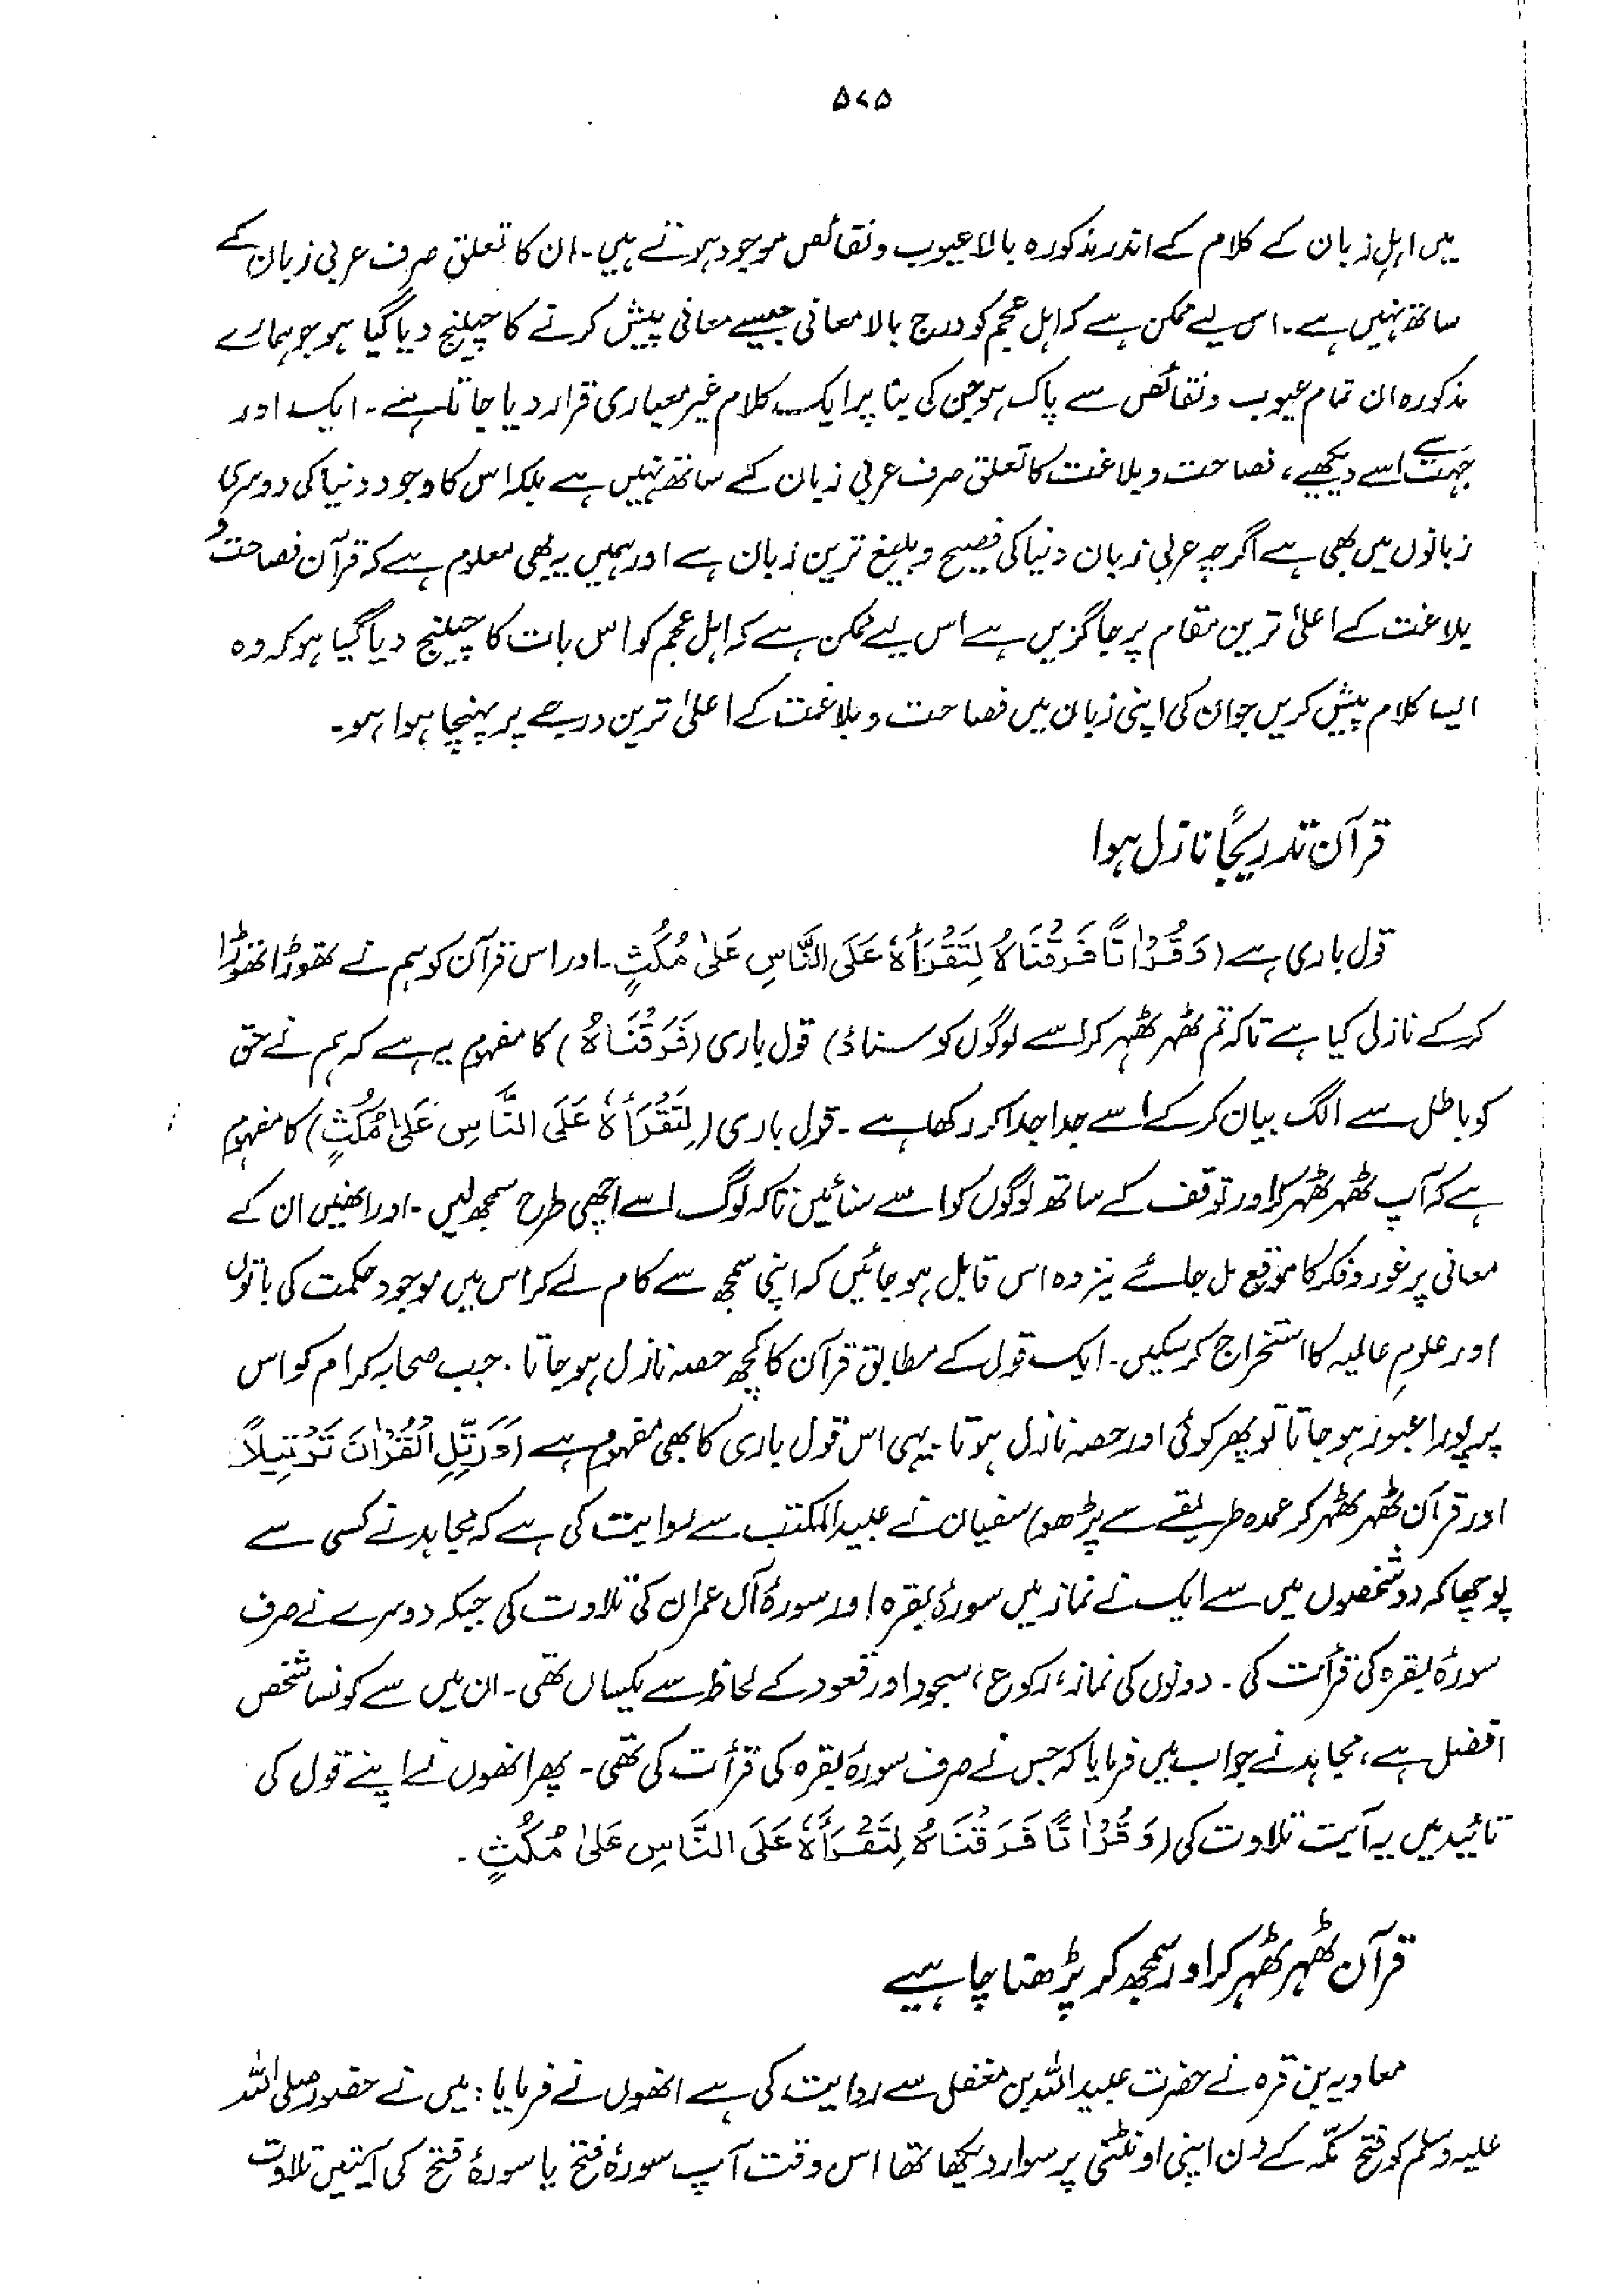 ۵۷۵
میں اہلِ زبان کے کلام کے اندر مذکورہ بالا عیوب و نقائص موجود ہوتے ہیں۔ ان کا تعلق صرف عربی زبان کے
ساتھ نہیں ہے۔ اس لیے ممکن ہے کہ اہل عجم کو درج بالا معانی جیسے معانی پیش کرنے کا چیلنج دیا گیا ہو جو ہمارے
مذکورہ ان تمام عیوب و نقائص سے پاک ہو جن کی بنا پر ایک کلام غیر معیاری قرار دیا جاتا ہے۔ ایک اور
جہت سے اسے دیکھیے، فصاحت و بلاغت کا تعلق صرف عربی زبان کے ساتھ نہیں ہے بلکہ اس کا وجود دنیا کی دوسری
زبانوں میں بھی ہے اگرچہ عربی زبان دنیا کی فصیح و بلیغ ترین زبان ہے اور ہمیں یہ بھی معلوم ہے کہ قرآن فصاحت و
بلاغت کے اعلیٰ ترین مقام پر جاگزیں ہے اس لیے ممکن ہے کہ اہل عجم کو اس بات کا چیلنج دیا گیا ہو کہ وہ
ایسا کلام پیش کریں جو ان کی اپنی زبان میں فصاحت و بلاغت کے اعلیٰ ترین درجے پر پہنچا ہوا ہو۔
قرآن تدریجًا نازل ہوا
قول باری ہے (وَقُرْاٰنًا فَرَقْنَاهُ لِتَقْرَأَهٗ عَلَى النَّاسِ عَلٰى مُكْثٍ۔ اور اس قرآن کو ہم نے تھوڑا تھوڑا
کرکے نازل کیا ہے تاکہ تم ٹھہر ٹھہر کر اسے لوگوں کو سناؤ) قول باری (فَرَقْنَاهُ) کا مفہوم یہ ہے کہ ہم نے حق
کو باطل سے الگ بیان کرکے اسے جدا جدا کر رکھا ہے۔ قول باری (لِتَقْرَأَهٗ عَلَى النَّاسِ عَلٰى مُكْثٍ) کا مفہوم
ہے کہ آپ ٹھہر ٹھہر کر اور توقف کے ساتھ لوگوں کو اسے سنائیں تاکہ لوگ اسے اچھی طرح سمجھ لیں۔ اور انھیں ان کے
معانی پر غور و فکر کا موقع مل جائے نیز وہ اس قابل ہو جائیں کہ اپنی سمجھ سے کام لے کر اس میں موجود حکمت کی باتوں
اور علومِ عالیہ کا استخراج کرسکیں۔ ایک قول کے مطابق قرآن کا کچھ حصہ نازل ہوجاتا۔ جب صحابہ کرام کو اس
پر پورا عبور ہوجاتا تو پھر کوئی اور حصہ نازل ہوتا۔ یہی اس قول باری کا بھی مفہوم ہے (وَرَتِّلِ الْقُرْاٰنَ تَرْتِيلًا
اور قرآن ٹھہر ٹھہر کر عمدہ طریقے سے پڑھو) سفیان نے عبید المکتب سے روایت کی ہے کہ مجاہد نے کسی سے
پوچھا کہ دو شخصوں میں سے ایک نے نماز میں سورۂ بقرہ اور سورۂ آل عمران کی تلاوت کی جبکہ دوسرے نے صرف
سورۂ بقرہ کی قرأت کی۔ دونوں کی نماز، رکوع، سجود اور قعود کے لحاظ سے یکساں تھی۔ ان میں سے کونسا شخص
افضل ہے، مجاہد نے جواب میں فرمایا کہ جس نے صرف سورۂ بقرہ کی قرأت کی تھی۔ پھر انھوں نے اپنے قول کی
تائید میں یہ آیت تلاوت کی (وَقُرْاٰنًا فَرَقْنَاهُ لِتَقْرَأَهٗ عَلَى النَّاسِ عَلٰى مُكْثٍ۔
قرآن ٹھہر ٹھہر کر اور سمجھ کر پڑھنا چاہیے
معاویہ بن قرہ نے حضرت عبید اللہ بن مغفل سے روایت کی ہے انھوں نے فرمایا: میں نے حضور صلی اللہ
علیہ وسلم کو فتح مکہ کے دن اپنی اونٹنی پر سوار دیکھا تھا اس وقت آپ سورۂ فتح یا سورۂ فتح کی آیتیں تلاوت